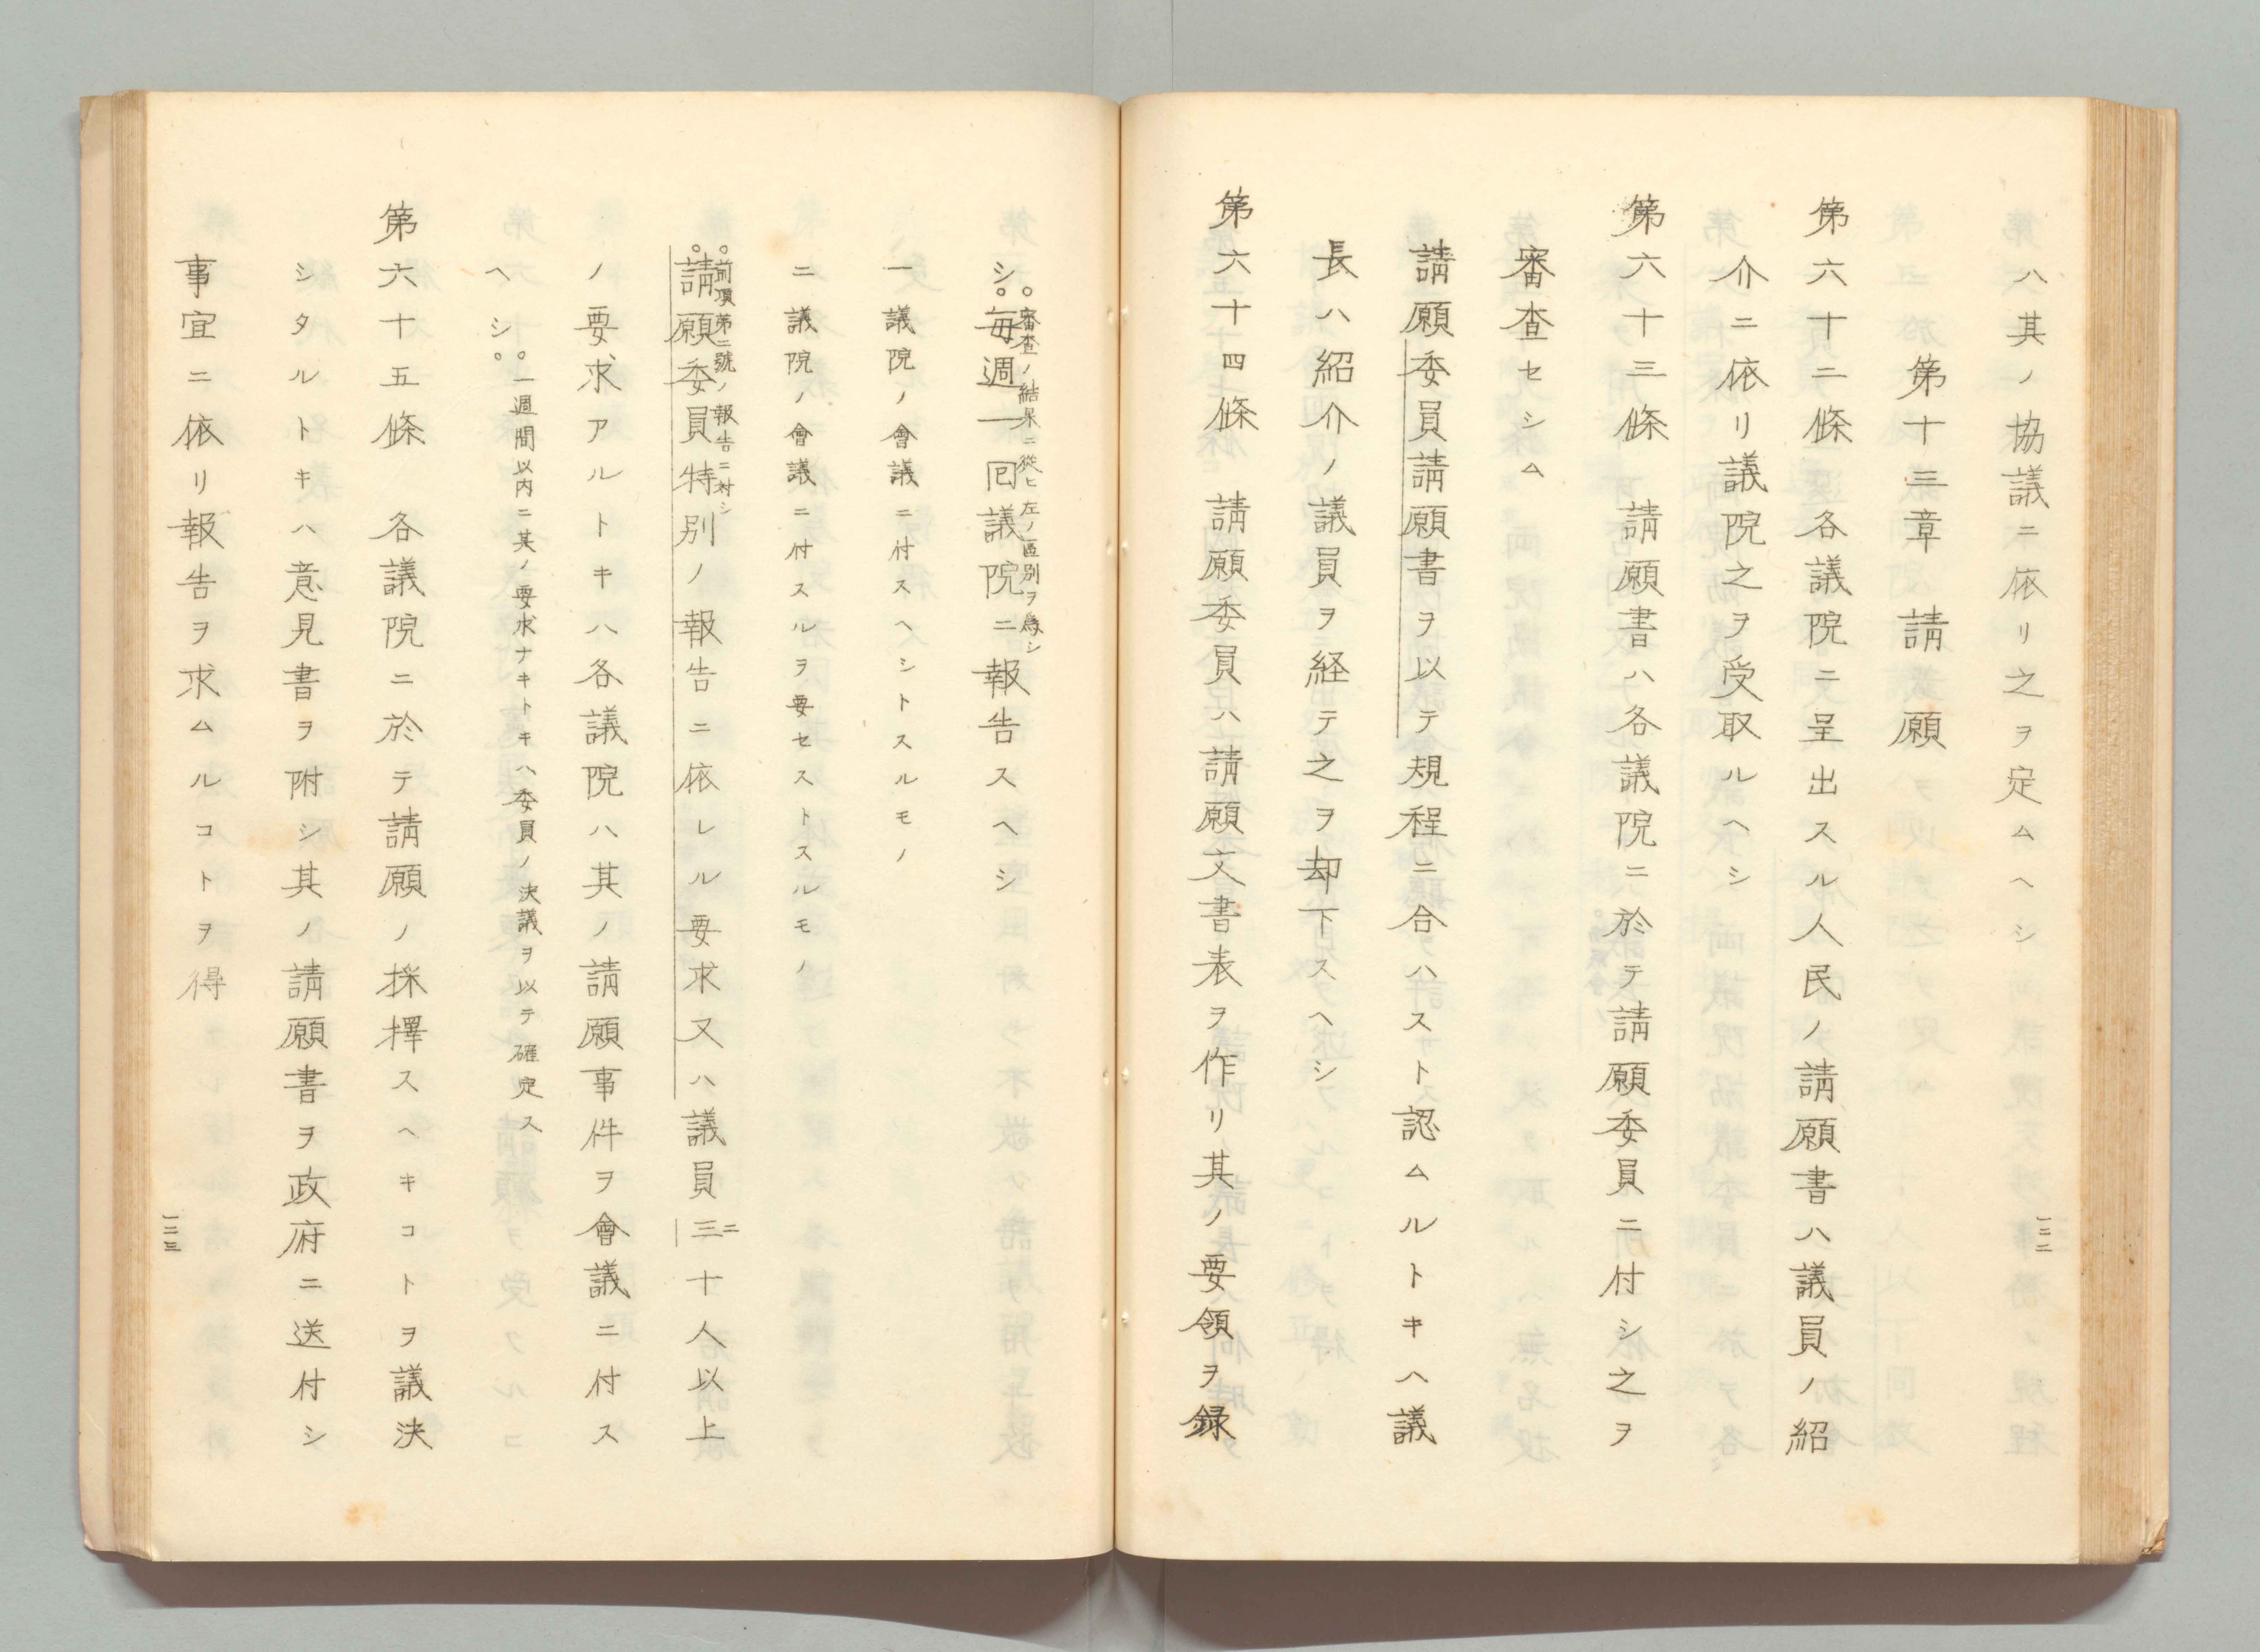 ハ其ノ協議ニ依リ之ヲ定ムヘシ
第十三章 請願
第六十二條 各議院ニ呈出スル人民ノ請願書ハ議員ノ紹
介ニ依リ議院之ヲ受取ルヘシ
第六十三條 請願書ハ各議院ニ於テ請願委員ニ付シ之ヲ
審査セシム
請願委員請願書ヲ以テ規程ニ合ハスト認ムルトキハ議
長ハ紹介ノ議員ヲ経テ之ヲ却下スヘシ
第六十四條 請願委員ハ請願文書表ヲ作リ其ノ要領ヲ録
一二二
シ。毎週一囘議院ニ報告スヘシ
。審査ノ結果ニ從ヒ左ノ區別ヲ爲シ
一議院ノ會議ニ付スヘシトスルモノ
二議院ノ會議ニ付スルヲ要セストスルモノ
。前項第二號ノ報告ニ対シ
。請願委員特別ノ報告ニ依レル要求又ハ議員三十人以上
二
ノ要求アルトキハ各議院ハ其ノ請願事件ヲ會議ニ付ス
ヘシ。
。一週間以内ニ其ノ要求ナキトキハ委員ノ決議ヲ以テ確定ス
第六十五條 各議院ニ於テ請願ノ採擇スヘキコトヲ議決
シタルトキハ意見書ヲ附シ其ノ請願書ヲ政府ニ送付シ
事宜ニ依リ報告ヲ求ムルコトヲ得
一二三